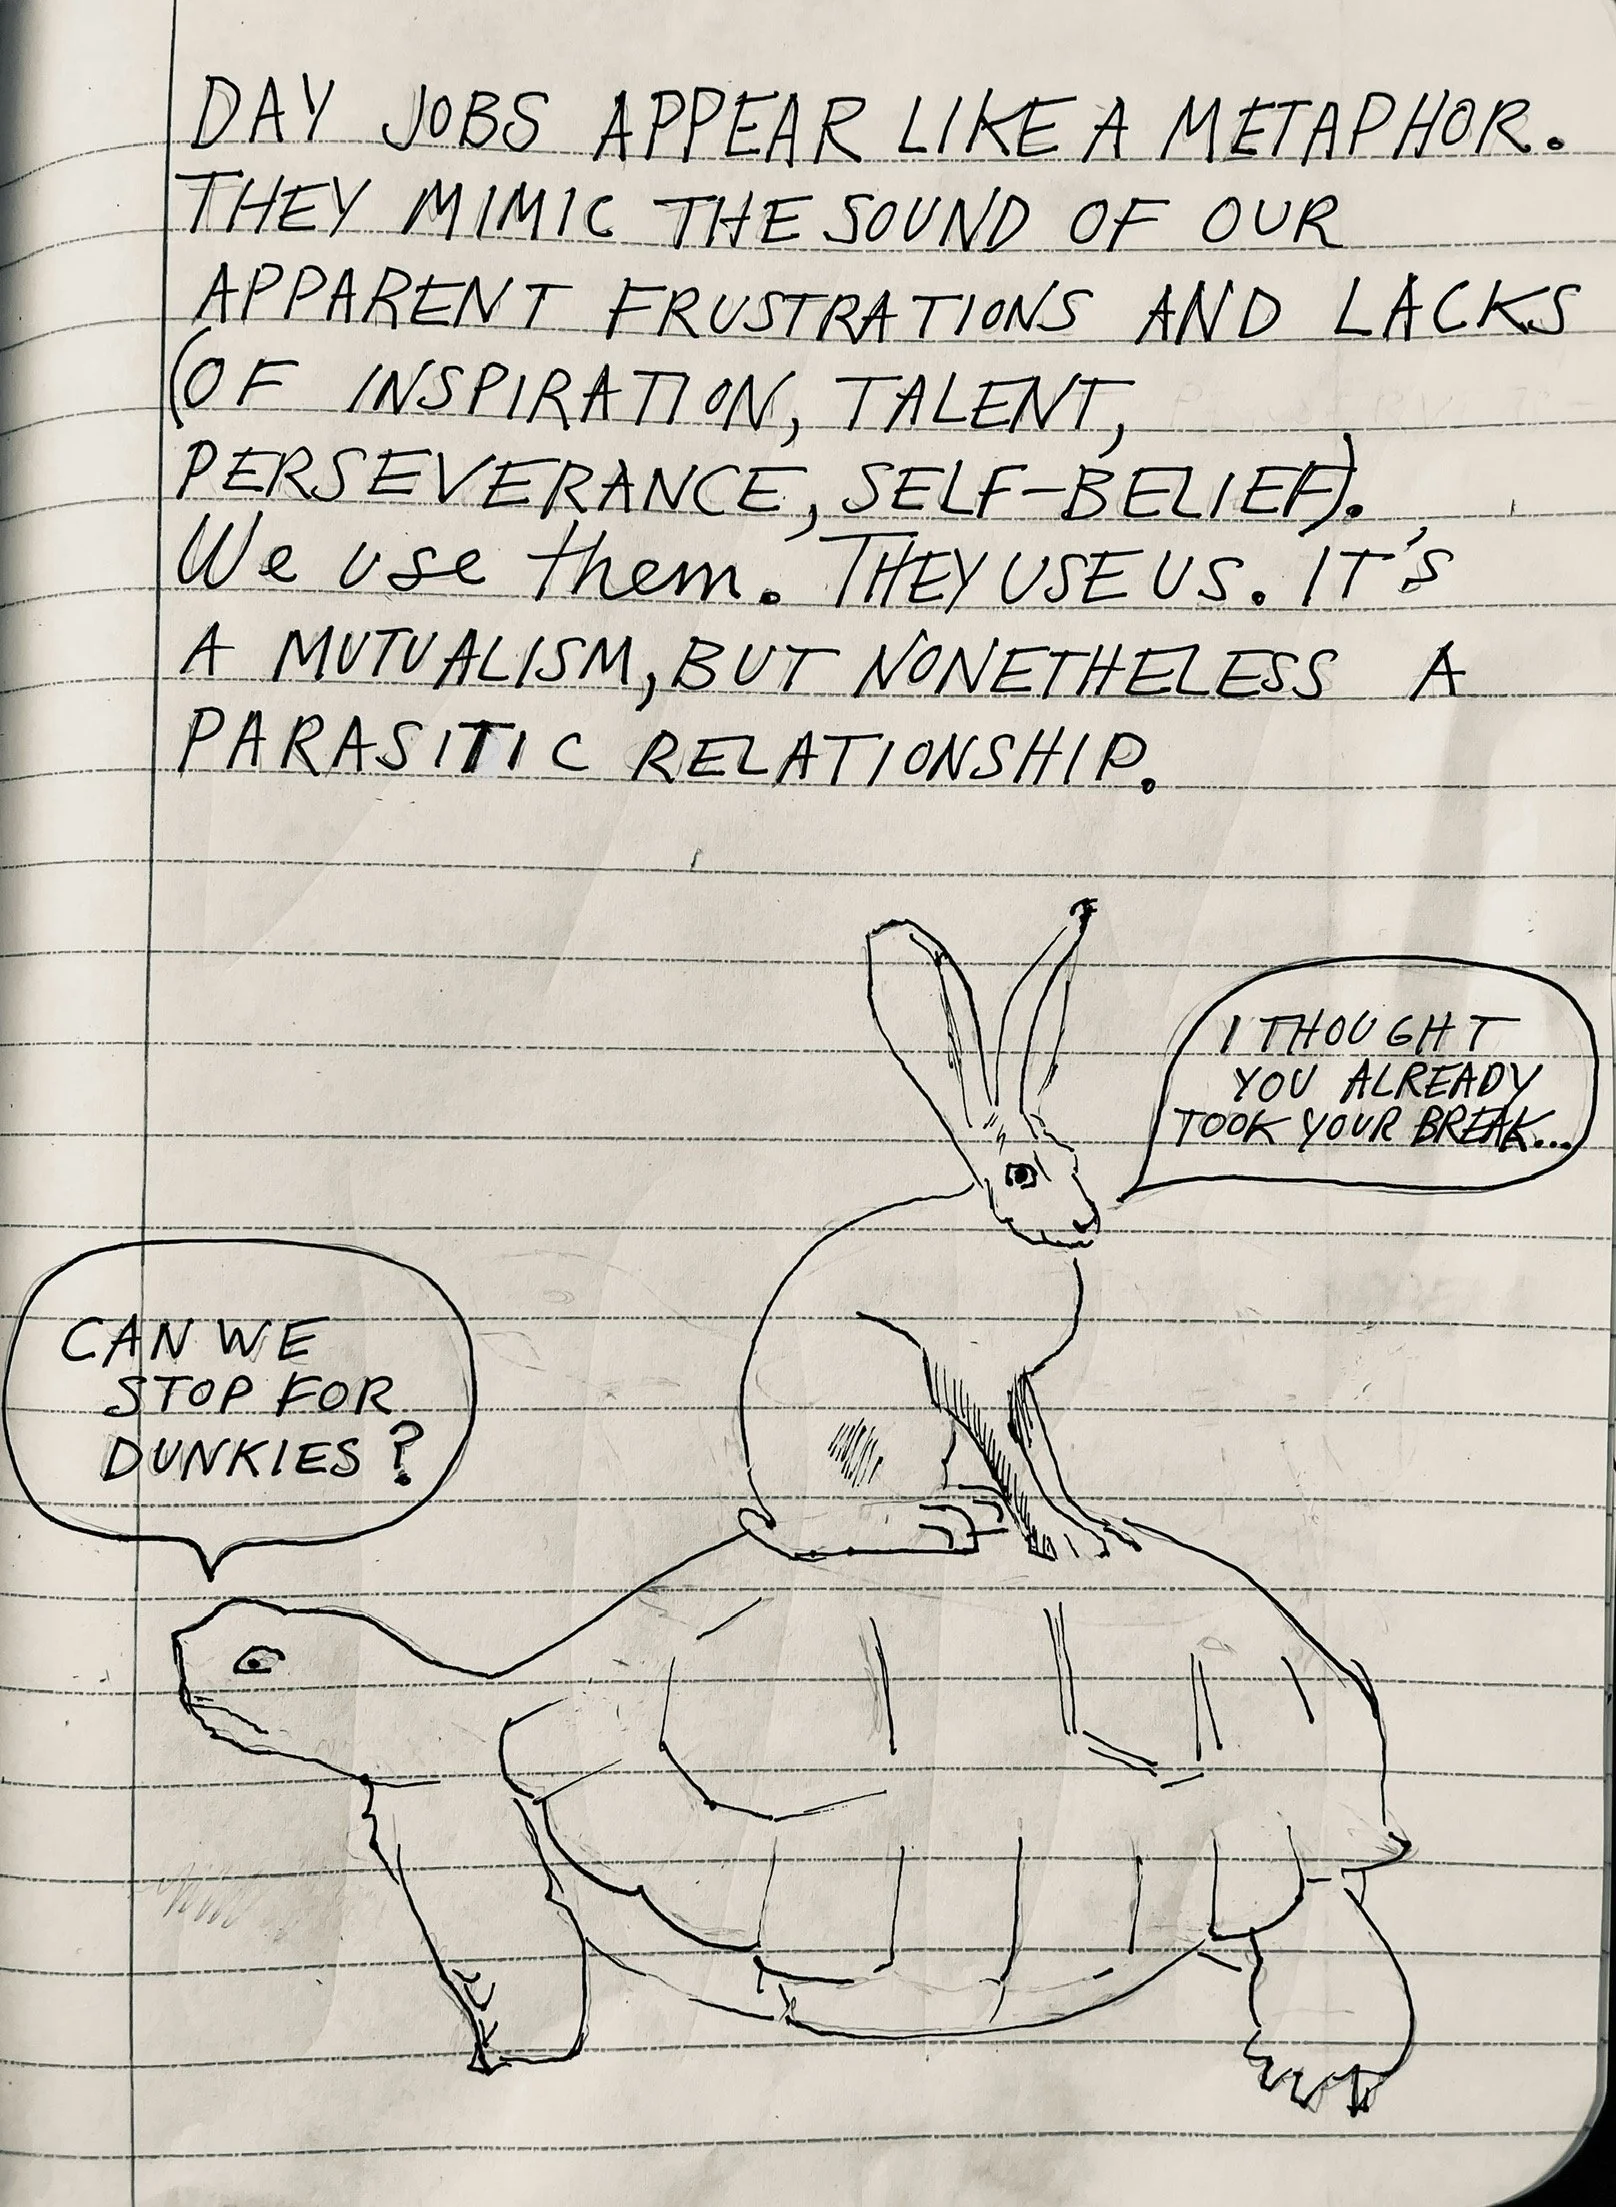 DAY JOBS APPEAR LIKE A METAPHOR.
THEY MIMIC THE SOUND OF OUR
APPARENT FRUSTRATIONS AND LACKS
(OF INSPIRATION, TALENT,
PERSEVERANCE, SELF-BELIEF).
We use them. THEY USE US. IT'S
A MUTUALISM, BUT NONETHELESS A
PARASITIC RELATIONSHIP.
I THOUGHT
YOU ALREADY
TOOK YOUR BREAK...
CAN WE
STOP FOR
DUNKIES?